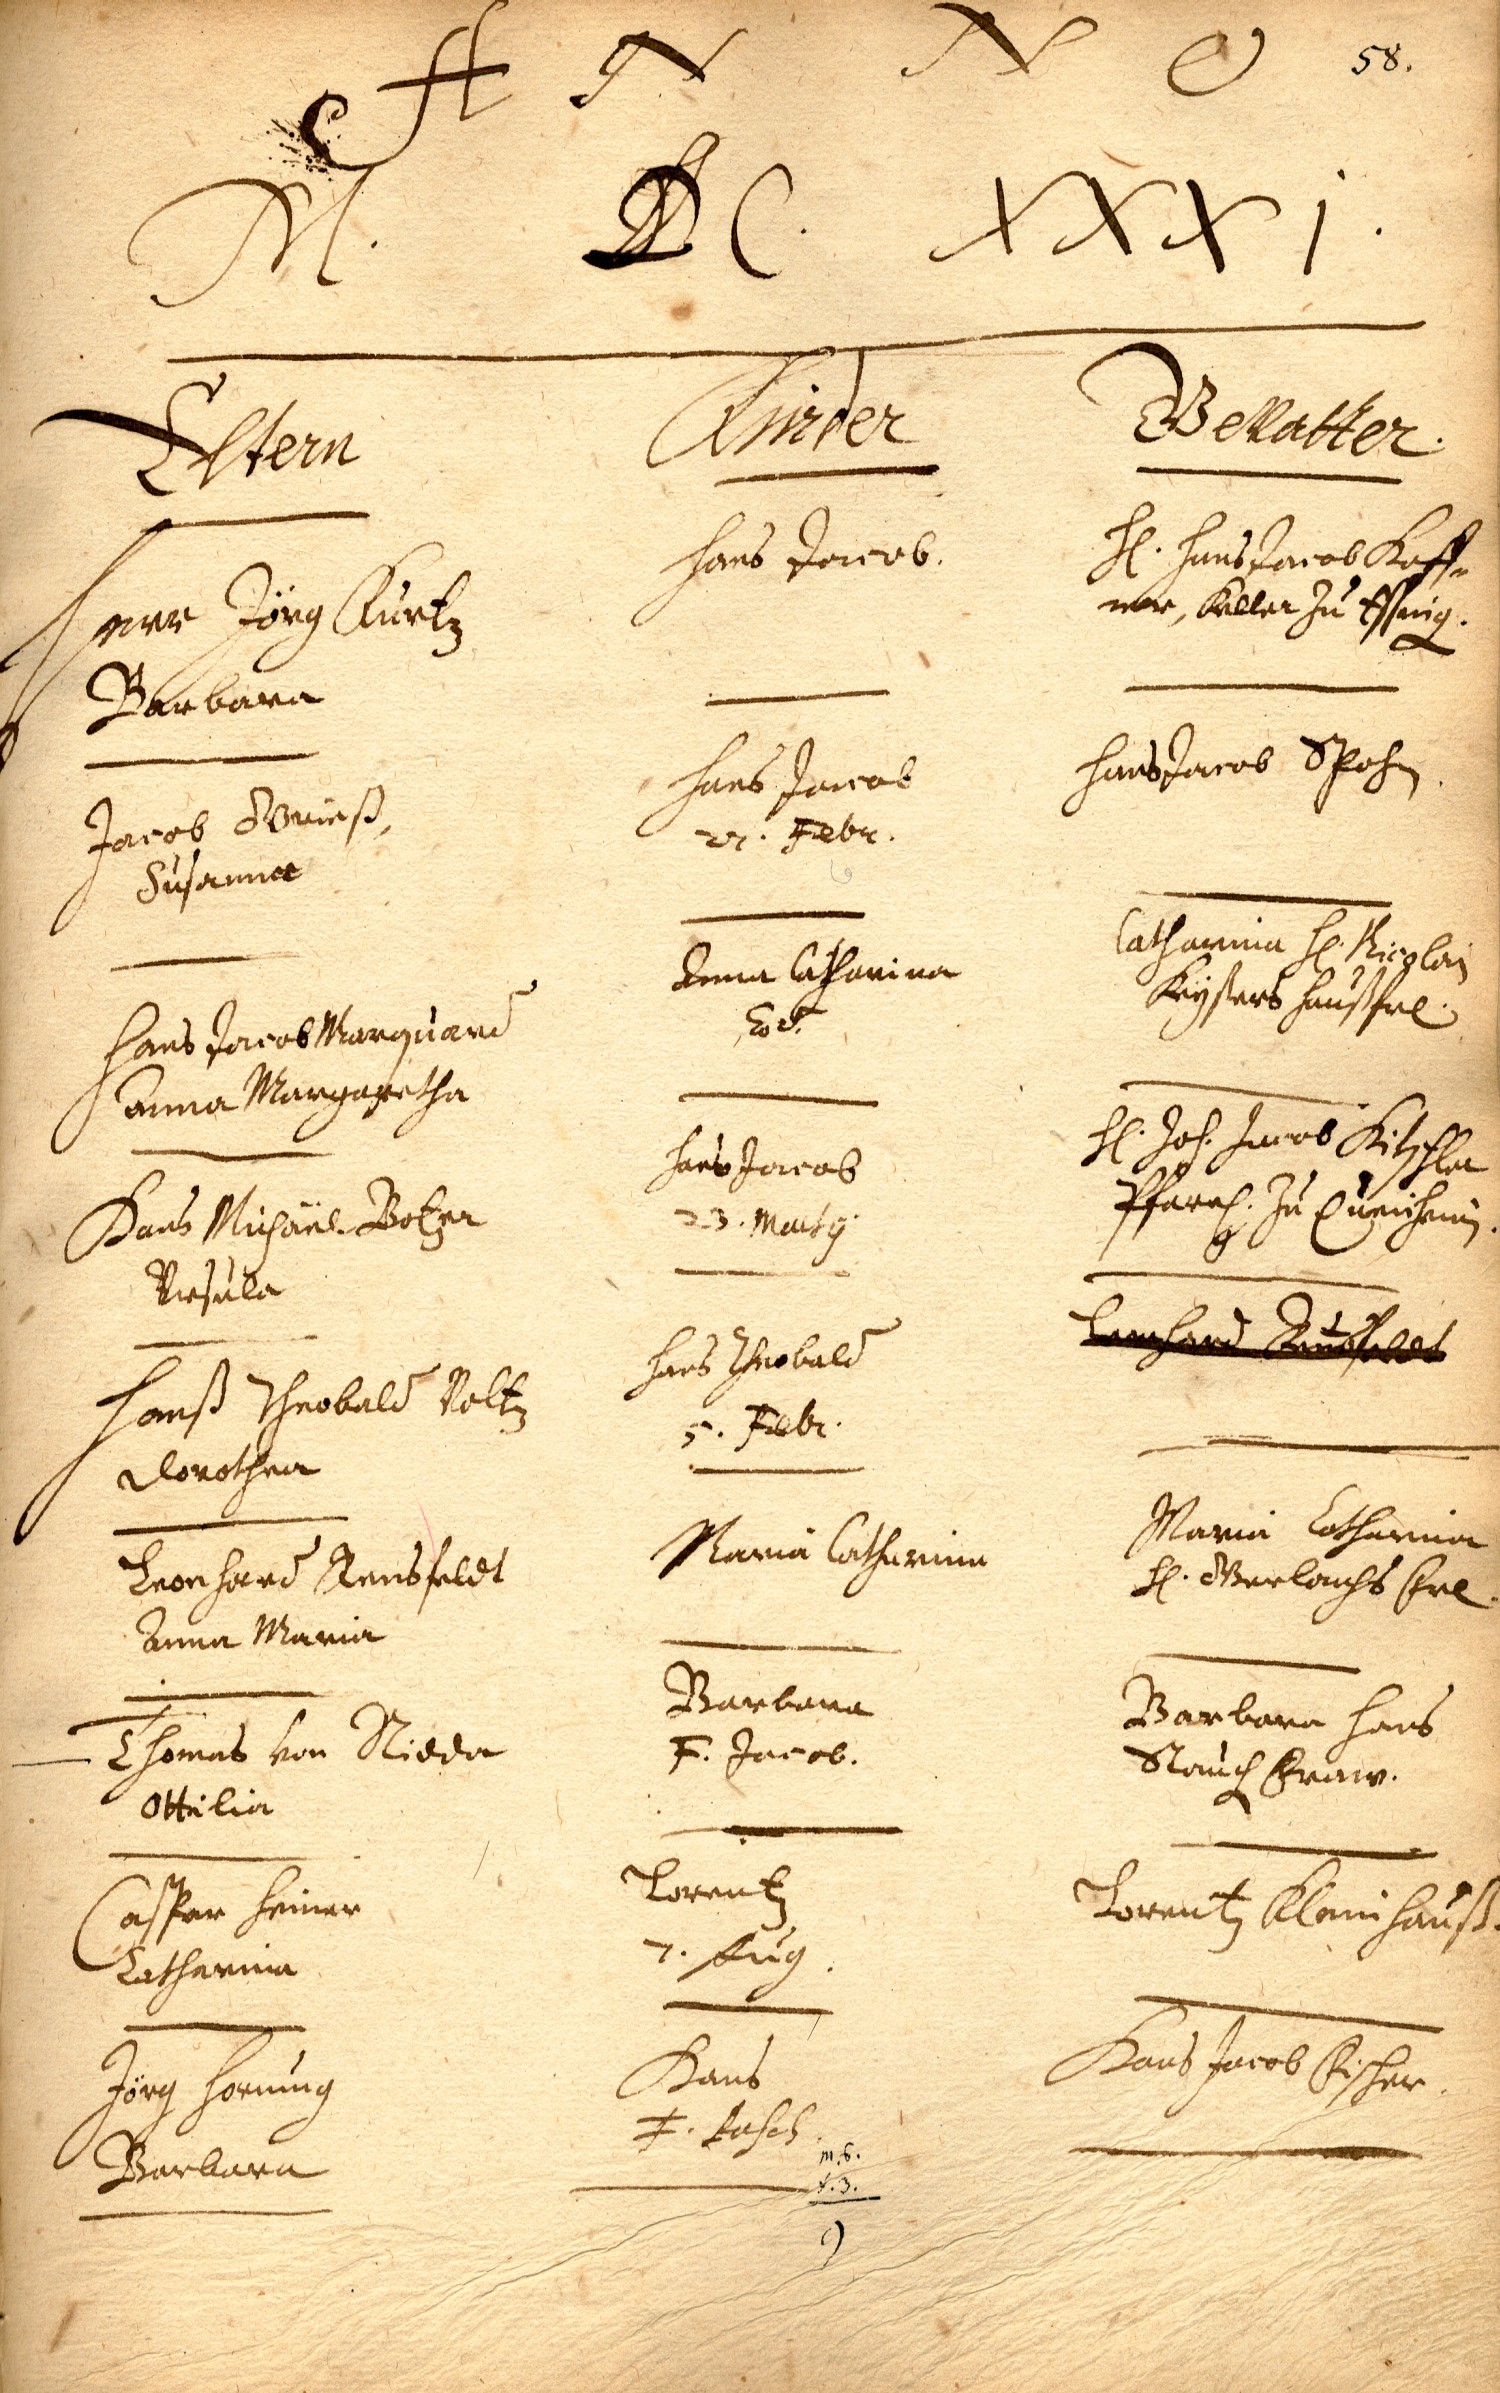 ANNO
58.
M. DC. XXXI.
Eltern
Kinder
Gevatter.
Herr Jörg Kurtz
Barbara
Hans Jacob.
H. Hans Jacob Koff-
ner, Keller zu
Jacob Grieß,
Susanna
Hans Jacob
Febr.
Hans Jacob Spohn.
Hans Jacob Marquard
Anna Margaretha
Anna Catharina
Eod.
Catharina H. Nicolai
Keysers haußfr.
Hans Michäel Botzer
Ursula
Hans Jacob
23. Martij
H. Joh. Jacob Kitzsler
Pfarrh. zu
Hanß Theobald Voltz
Dorothea
Hans Theobald
5. Febr.
Leonhard Rensfeldt
Leonhard Rensfeldt
Anna Maria
Maria Catharina
Maria Catharina
H. Gerlachs Fr.
Thomas von Nidda
Ottilia
Barbara
F. Jacob.
Barbara Hans
Rauch Fraw.
Caspar Heiner
Catharina
Lorentz
7. Aug.
Lorentz Kleinhauß.
Jörg Hornung
Barbara
Hans
Hans Jacob Fischer.
m. 6.
f. 3.
9